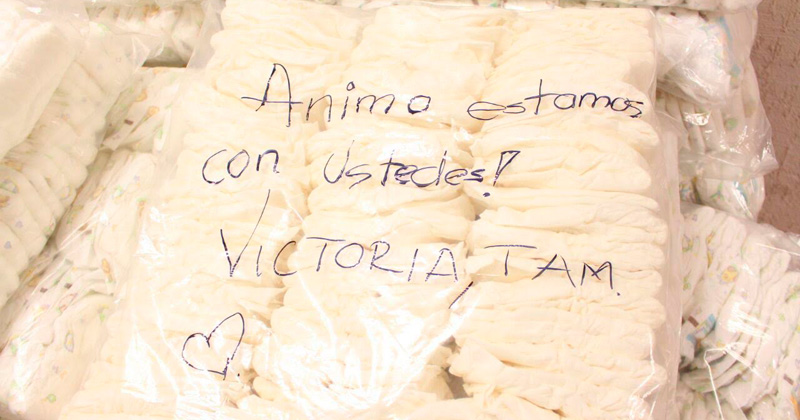 Animo estamos
con Ustedes!
VICTORIA, TAM.